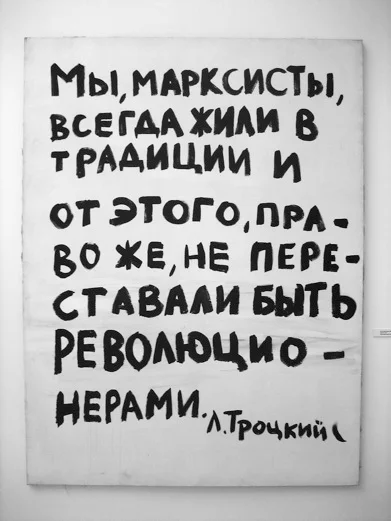 Мы, МАРКСИСТЫ,
ВСЕГДА ЖИЛИ В
ТРАДИЦИИ И
ОТ ЭТОГО, ПРА-
ВО ЖЕ, НЕ ПЕРЕ-
СТАВАЛИ БЫТЬ
РЕВОЛЮЦИО-
НЕРАМИ.
Л.Троцкий